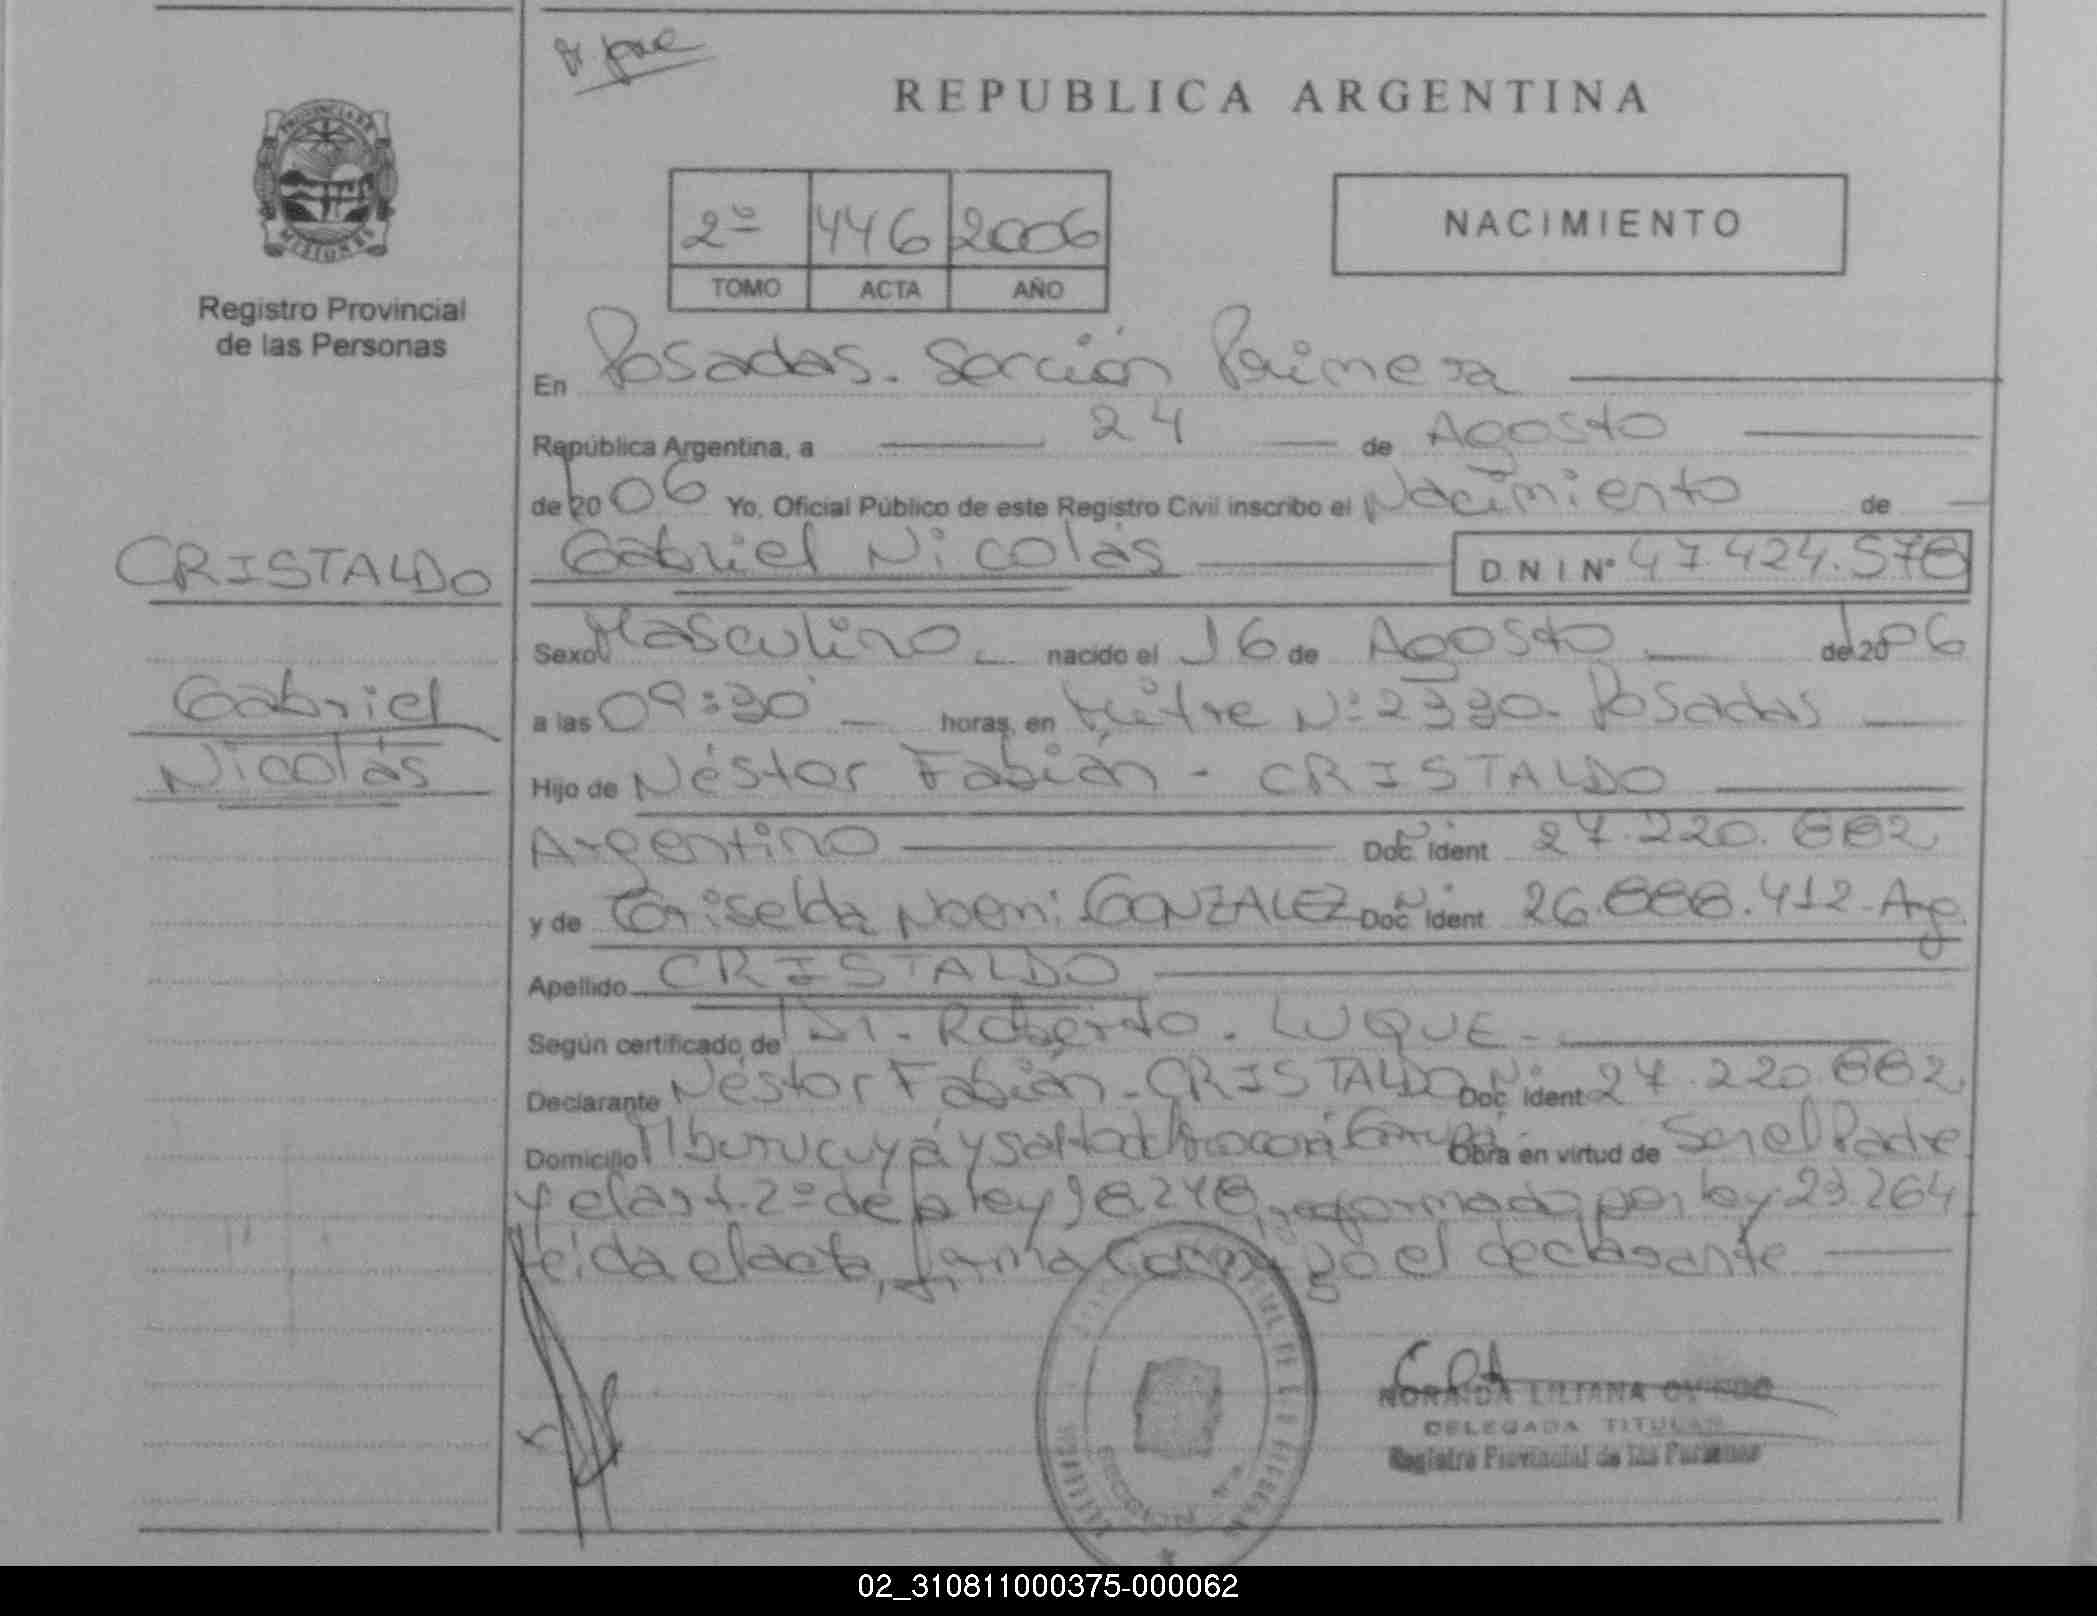 REPUBLICA ARGENTINA
PROVINCIA DE
MISIONES
Registro Provincial
de las Personas
2º 446 2006
TOMO ACTA AÑO
NACIMIENTO
En Posadas. Sección Primera
República Argentina, a 24 de Agosto
de 2006 Yo, Oficial Público de este Registro Civil inscribo el Nacimiento de
CRISTALDO
Gabriel Nicolás D N I Nº 47.424.578
Gabriel
Nicolás
Sexo Masculino nacido el 16 de Agosto de 2006
a las 09:30 horas, en Mitre Nº 2330. Posadas
Hijo de Néstor Fabián - CRISTALDO
Argentino Doc. Ident 27.220.882
y de Griselda Noemi GONZALEZ Doc Ident 26.888.412 - Arg
Apellido CRISTALDO
Según certificado de Dr. Roberto. LUQUE -
Declarante Néstor Fabián - CRISTALDO Doc. Ident 27.220.882
Domicilio Mburucuyá y Salto Garupá Obra en virtud de Ser el Padre
y el art. 2º de la ley 18.248, reformada por ley 23.264
leída el acta, firma conmigo el declarante
NORAIDA LILIANA OVIEDO
DELEGADA TITULAR
Registro Provincial de las Personas
02_310811000375-000062